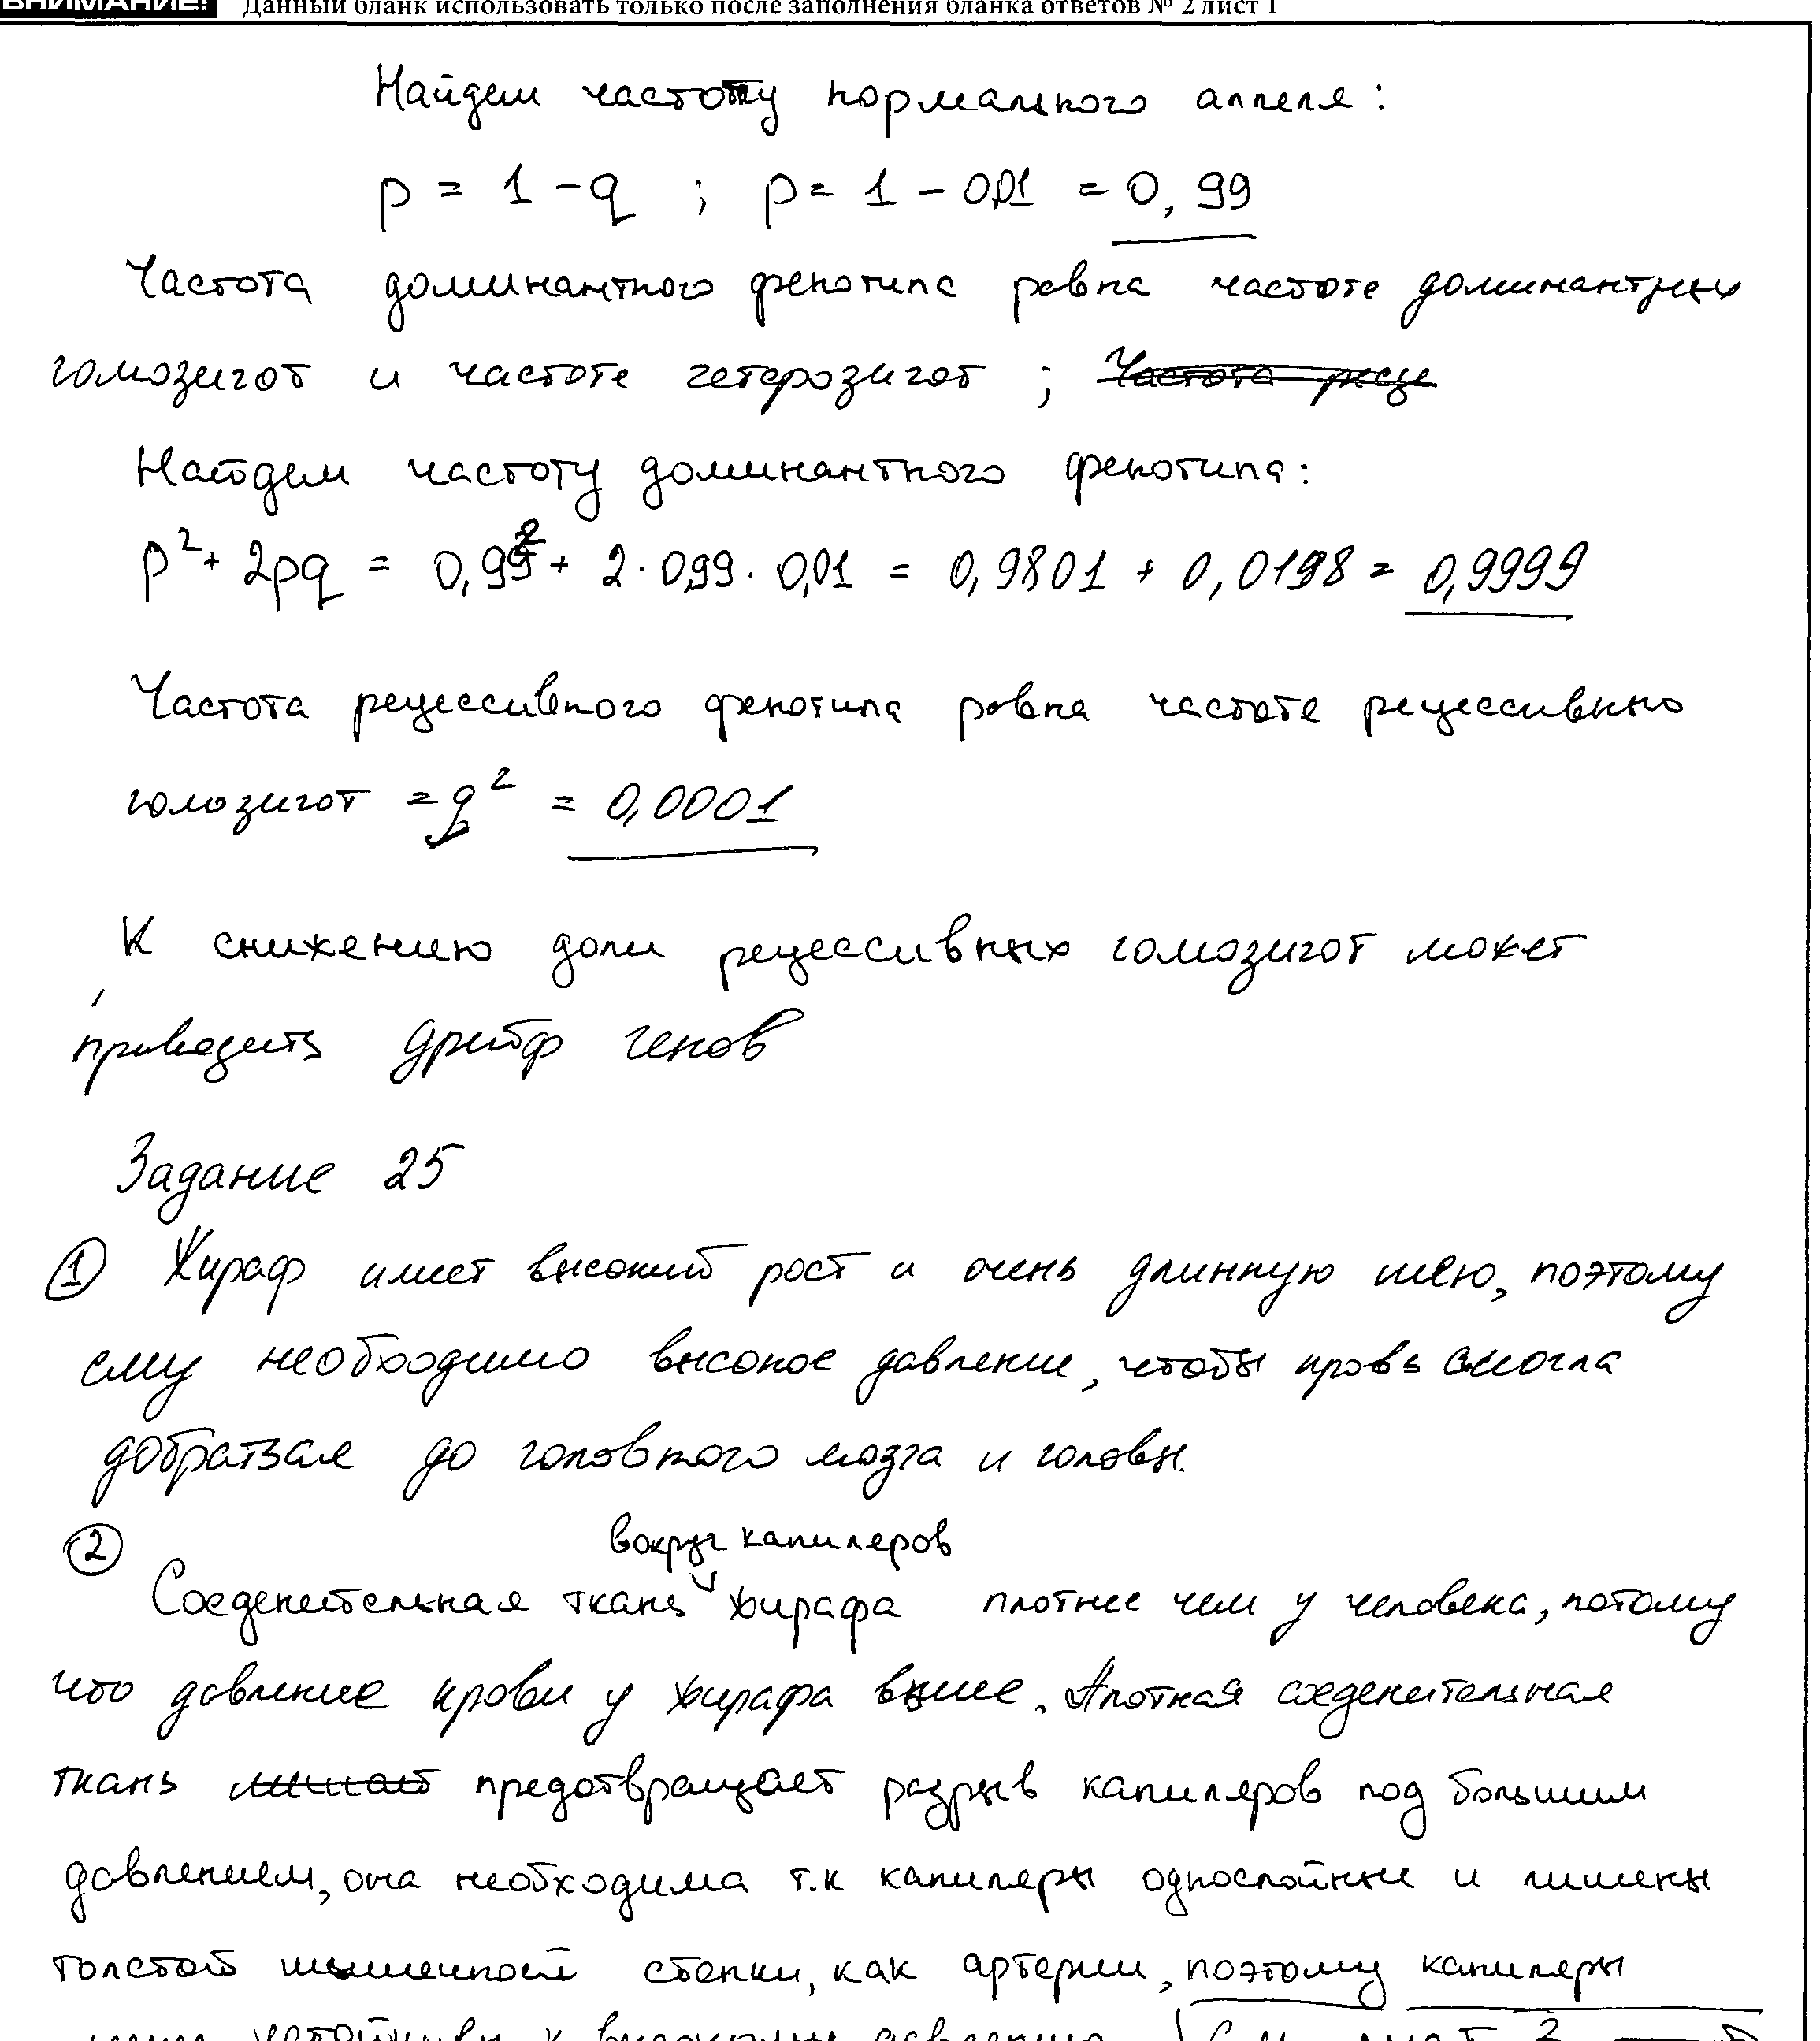 ВНИМАНИЕ! Данный бланк использовать только после заполнения бланка ответов № 2 лист 1
Найдем частоту нормального аллеля:
p = 1 - q ; p = 1 - 0,01 = 0,99
Частота доминантного фенотипа равна частоте доминантных
гомозигот и частоте гетерозигот ; Частота реце
Найдем частоту доминантного фенотипа:
p² + 2pq = 0,99² + 2·0,99·0,01 = 0,9801 + 0,0198 = 0,9999
Частота рецессивного фенотипа равна частоте рецессивных
гомозигот = q² = 0,0001
К снижению доли рецессивных гомозигот может
приводить дрейф генов
Задание 25
① Жираф имеет высокий рост и очень длинную шею, поэтому
ему необходимо высокое давление, чтобы кровь смогла
добраться до головного мозга и головы.
②
вокруг капиляров
Соеденительная ткань жирафа плотнее чем у человека, потому
что давление крови у жирафа выше. Плотная соеденительная
ткань предотвращает разрыв капиляров под большим
давлением, она необходима т.к капиляры однослойные и лишены
толстой мышечной стенки, как артерии, поэтому капиляры
устойчивы к высокому давлению См лист 3